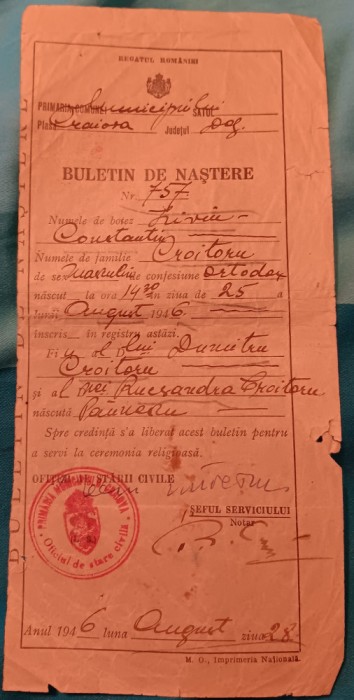 REGATUL ROMÂNIEI
PRIMĂRIA COMUNEI Municipiului SATUL
Plasa Craiova Județul Dolj
BULETIN DE NAȘTERE
Nr. 757
Numele de botez Liviu-
Constantin
Numele de familie Croitoru
de sex masculin de confesiune ortodox
născut la ora 14 30 în ziua de 25 a
lunii August 1946.
înscris în registru astăzi.
Fiu al lui Dumitru
Croitoru
și al Croitoru
născută
Spre credință s'a liberat acest buletin pentru
a servi la ceremonia religioasă.
OFIȚER DE STĂRII CIVILE
ȘEFUL SERVICIULUI
Notar
Oficiul de stare civilă
Anul 1946 luna August ziua 28
M. O., Imprimeria Națională.
BULETIN DE NAȘTERE